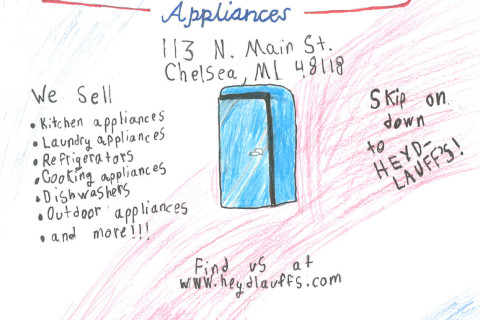 Appliances
113 N. Main St.
Chelsea, MI 48118
We Sell
• Kitchen appliances
• Laundry appliances
• Refrigerators
• Cooking appliances
• Dishwashers
• Outdoor appliances
• and more!!!
Skip on
down
to
HEYD-
LAUFF'S!
Find us at
www.heydlauffs.com